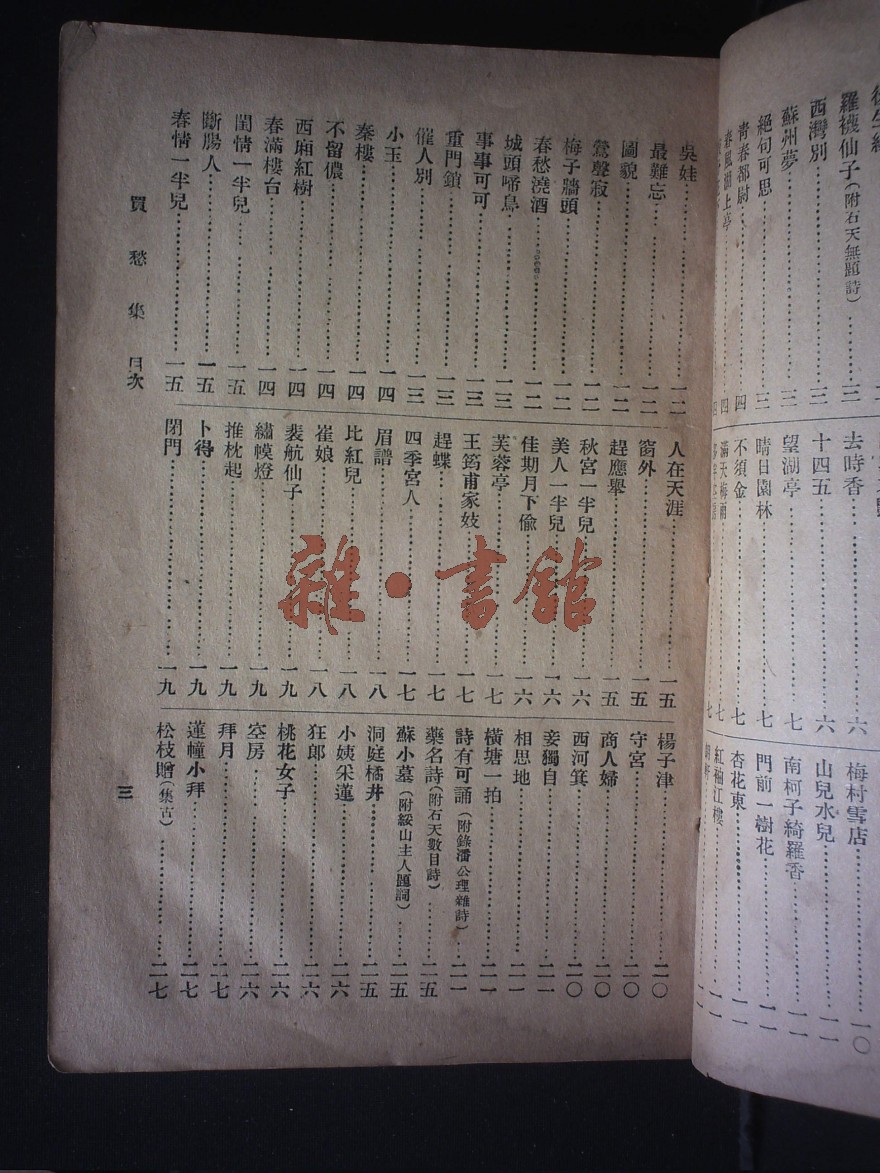 羅襪仙子(附石天無題詩) 三
西灣別 三
蘇州夢 三
絕句可思 三
青春都尉 四
春風湖上亭 四
去時香 六
十四五 六
望湖亭 七
晴日園林 七
不須金 七
滿天梅雨 七
梅村雪店 一〇
山兒水兒 一一
南柯子綺羅香 一一
門前一樹花 一一
杏花東 一一
紅袖江樓 一一
吳娃 一二
最難忘 一二
圖貌 一二
鶯聲寂 一二
梅子牆頭 一二
春愁澆酒 一二
城頭啼鳥 一三
事事可可 一三
重門鎖 一三
催人別 一三
小玉 一四
秦樓 一四
不留儂 一四
西廂紅樹 一四
春滿樓台 一四
閨情一半兒 一五
斷腸人 一五
春情一半兒 一五
人在天涯 一五
窗外 一五
趕應舉 一五
秋宮一半兒 一六
美人一半兒 一六
佳期月下偷 一六
芙蓉亭 一七
王筠甫家妓 一七
趕蝶 一七
四季宮人 一七
眉譜 一八
比紅兒 一八
崔娘 一八
裴航仙子 一九
繡幙燈 一九
推枕起 一九
卜得 一九
閉門 一九
楊子津 二〇
守宮 二〇
商人婦 二〇
西河箕 二〇
妾獨自 二一
相思地 二一
橫塘一拍 二一
詩有可誦(附錄潘公理雜詩) 二一
藥名詩(附石天數目詩) 二五
蘇小墓(附綏山主人題詞) 二五
洞庭橘井 二五
小姨采蓮 二六
狂郎 二六
桃花女子 二六
空房 二六
拜月 二七
蓮幢小拜 二七
松枝贈(集古) 二七
買愁集 目次
三
雜·書館